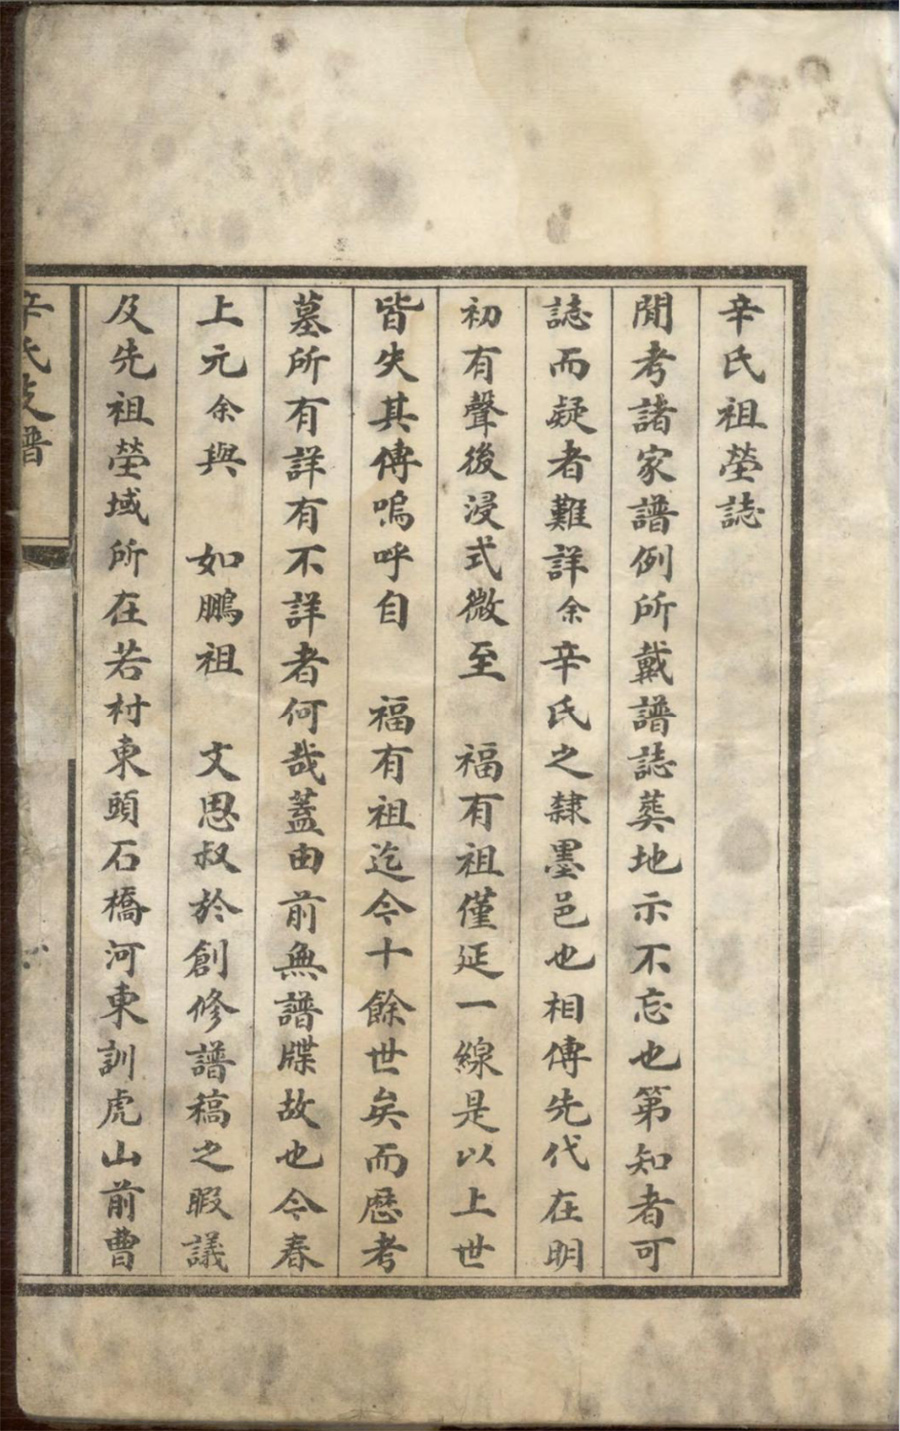 辛氏祖塋誌
閒考諸家譜例所戴譜誌葬地示不忘也第知者可
誌而疑者難詳余辛氏之隸墨邑也相傳先代在明
初有聲後浸式微至　福有祖僅延一線是以上世
皆失其傳嗚呼自　福有祖迄今十餘世矣而歷考
墓所有詳有不詳者何哉蓋由前無譜牒故也今春
上元余與　如鵬祖　文思叔於創修譜稿之暇議
及先祖塋域所在若村東頭石橋河東訓虎山前曹
辛氏支譜